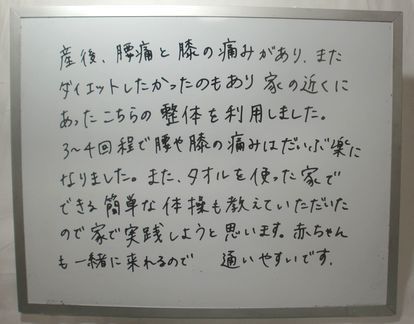 産後、腰痛と膝の痛みがあり、また
ダイエットしたかったのもあり家の近くに
あったこちらの整体を利用しました。
3~4回程で腰や膝の痛みはだいぶ楽に
なりました。また、タオルを使った家で
できる簡単な体操も教えていただいた
ので家で実践しようと思います。赤ちゃん
も一緒に来れるので 通いやすいです。